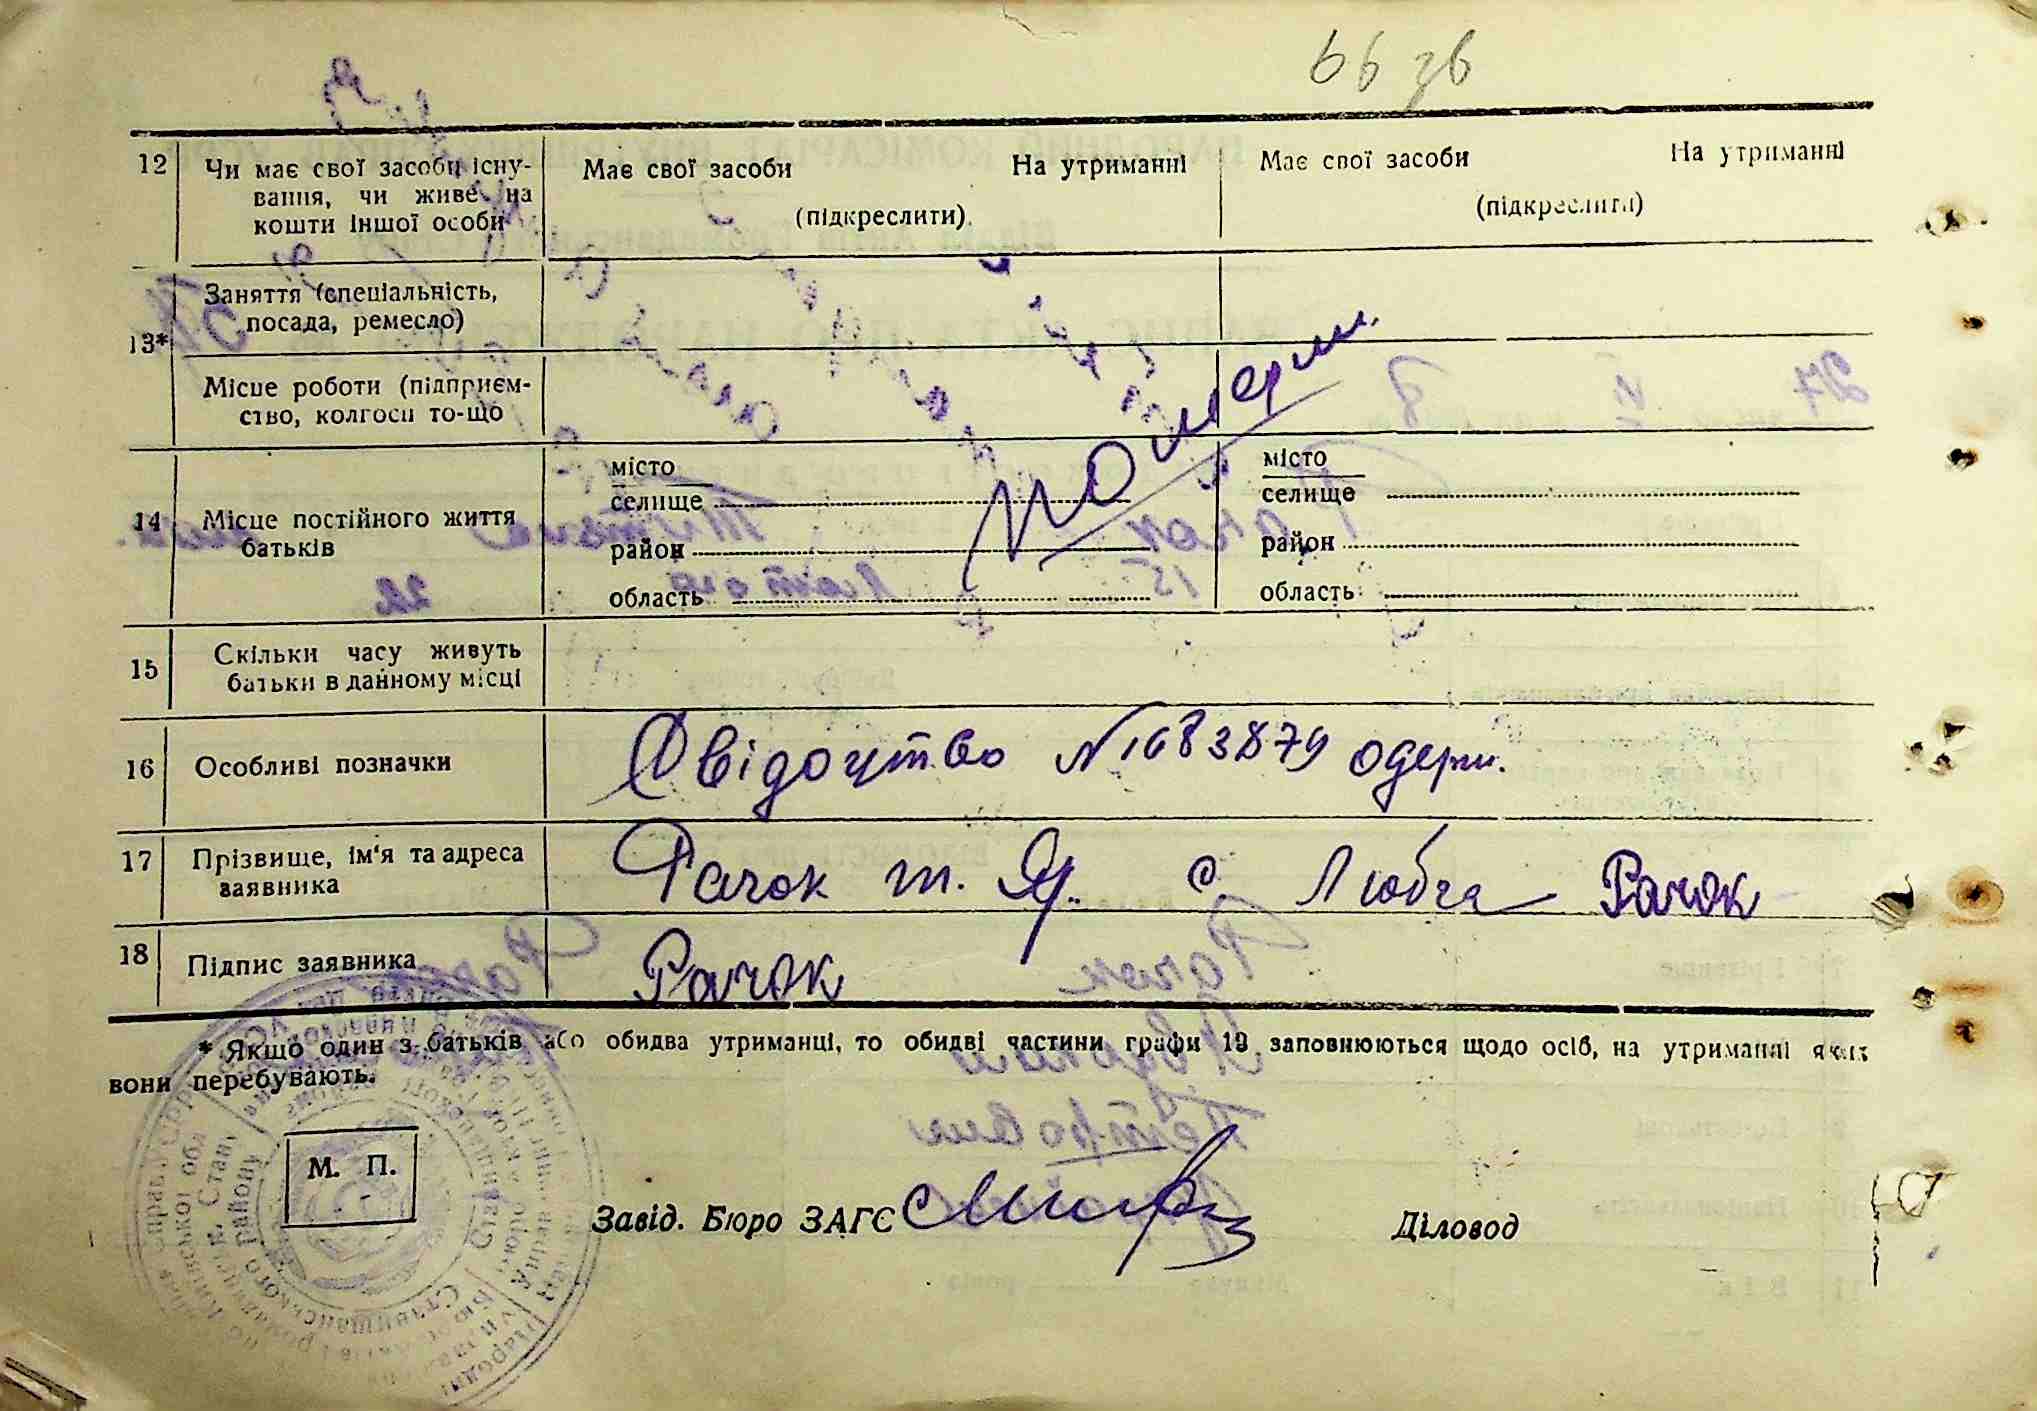 66 зв
12 Чи має свої засоби існу-
вання, чи живе на
кошти іншої особи
Має свої засоби На утриманні
(підкреслити)
Має свої засоби На утриманні
(підкреслити)
13*
Заняття (спеціальність,
посада, ремесло)
Місце роботи (підприєм-
ство, колгосп то-що
14 Місце постійного життя
батьків
місто
селище
район
область
місто
селище
район
область
померли.
15 Скільки часу живуть
батьки в данному місці
16 Особливі позначки Свідоцтво № 1683879 одерж.
17 Прізвище, ім'я та адреса
заявника
Рачок т. Я. с. Любча Рачок
18 Підпис заявника Рачок
* Якщо один з батьків або обидва утриманці, то обидві частини графи 13 заповнюються щодо осіб, на утриманні яких
вони перебувають.
М. П.
Завід. Бюро ЗАГС Діловод